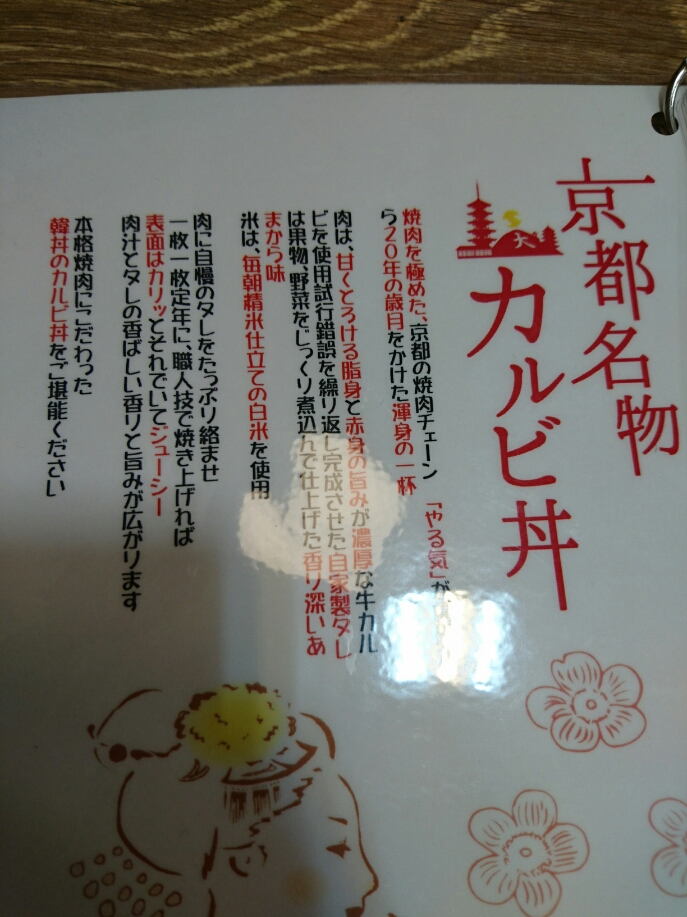 京都名物
カルビ丼
大
焼肉を極めた、京都の焼肉チェーン「やる気」が、
ら20年の歳月をかけた渾身の一杯
肉は、甘くとろける脂身と赤身の旨みが濃厚な牛カル
ビを使用試行錯誤を繰り返し完成させた自家製タレ
は果物、野菜をじっくり煮込んで仕上げた香り深いあ
まから味
米は、毎朝精米仕立ての白米を使用
肉に自慢のタレをたっぷり絡ませ
一枚一枚定年に、職人技で焼き上げれば
表面はカリッとそれでいてジューシー
肉汁とタレの香ばしい香りと旨みが広がります
本格焼肉にこだわった
韓丼のカルビ丼をご堪能ください